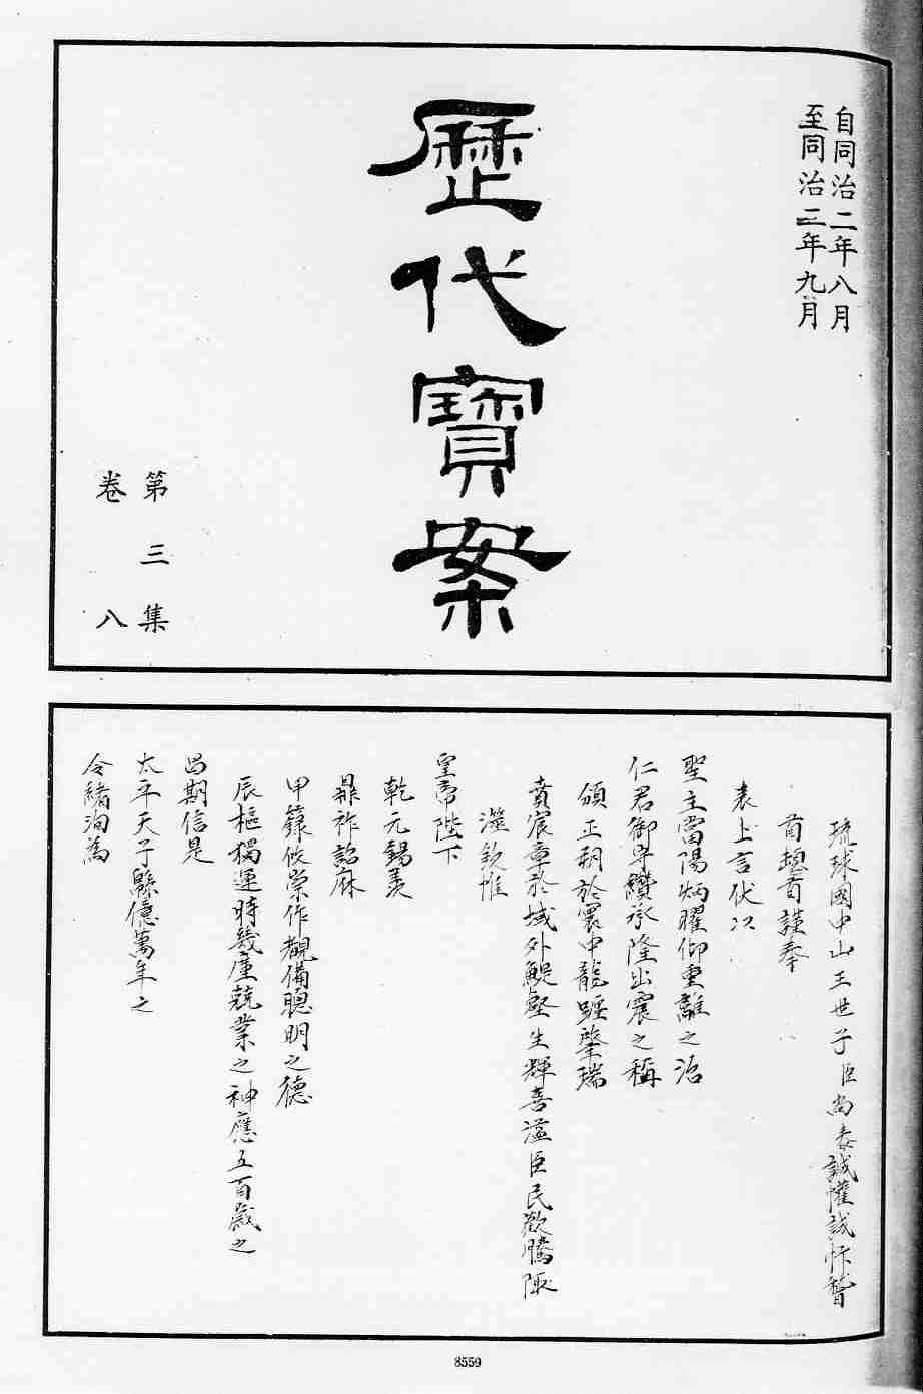 自同治二年八月
至同治二年九月
歷代寶案
第三集
卷八
琉球國中山王世子臣尚泰誠懽誠忭稽
首頓首謹奉
表上言伏以
聖主當陽炳曜仰重離之治
仁君御宇纘承隆出震之稱
頒正朔於寰中龍躔肇瑞
賁宸章於域外鯷壑生輝喜溢臣民歡騰陬
澨欽惟
皇帝陛下
乾元錫羨
鼎祚詒庥
甲籙攸崇作覩備聰明之德
辰樞獨運時幾廑兢業之神應五百歲之
昌期信是
太平天子緜億萬年之
令緒洵為
8559